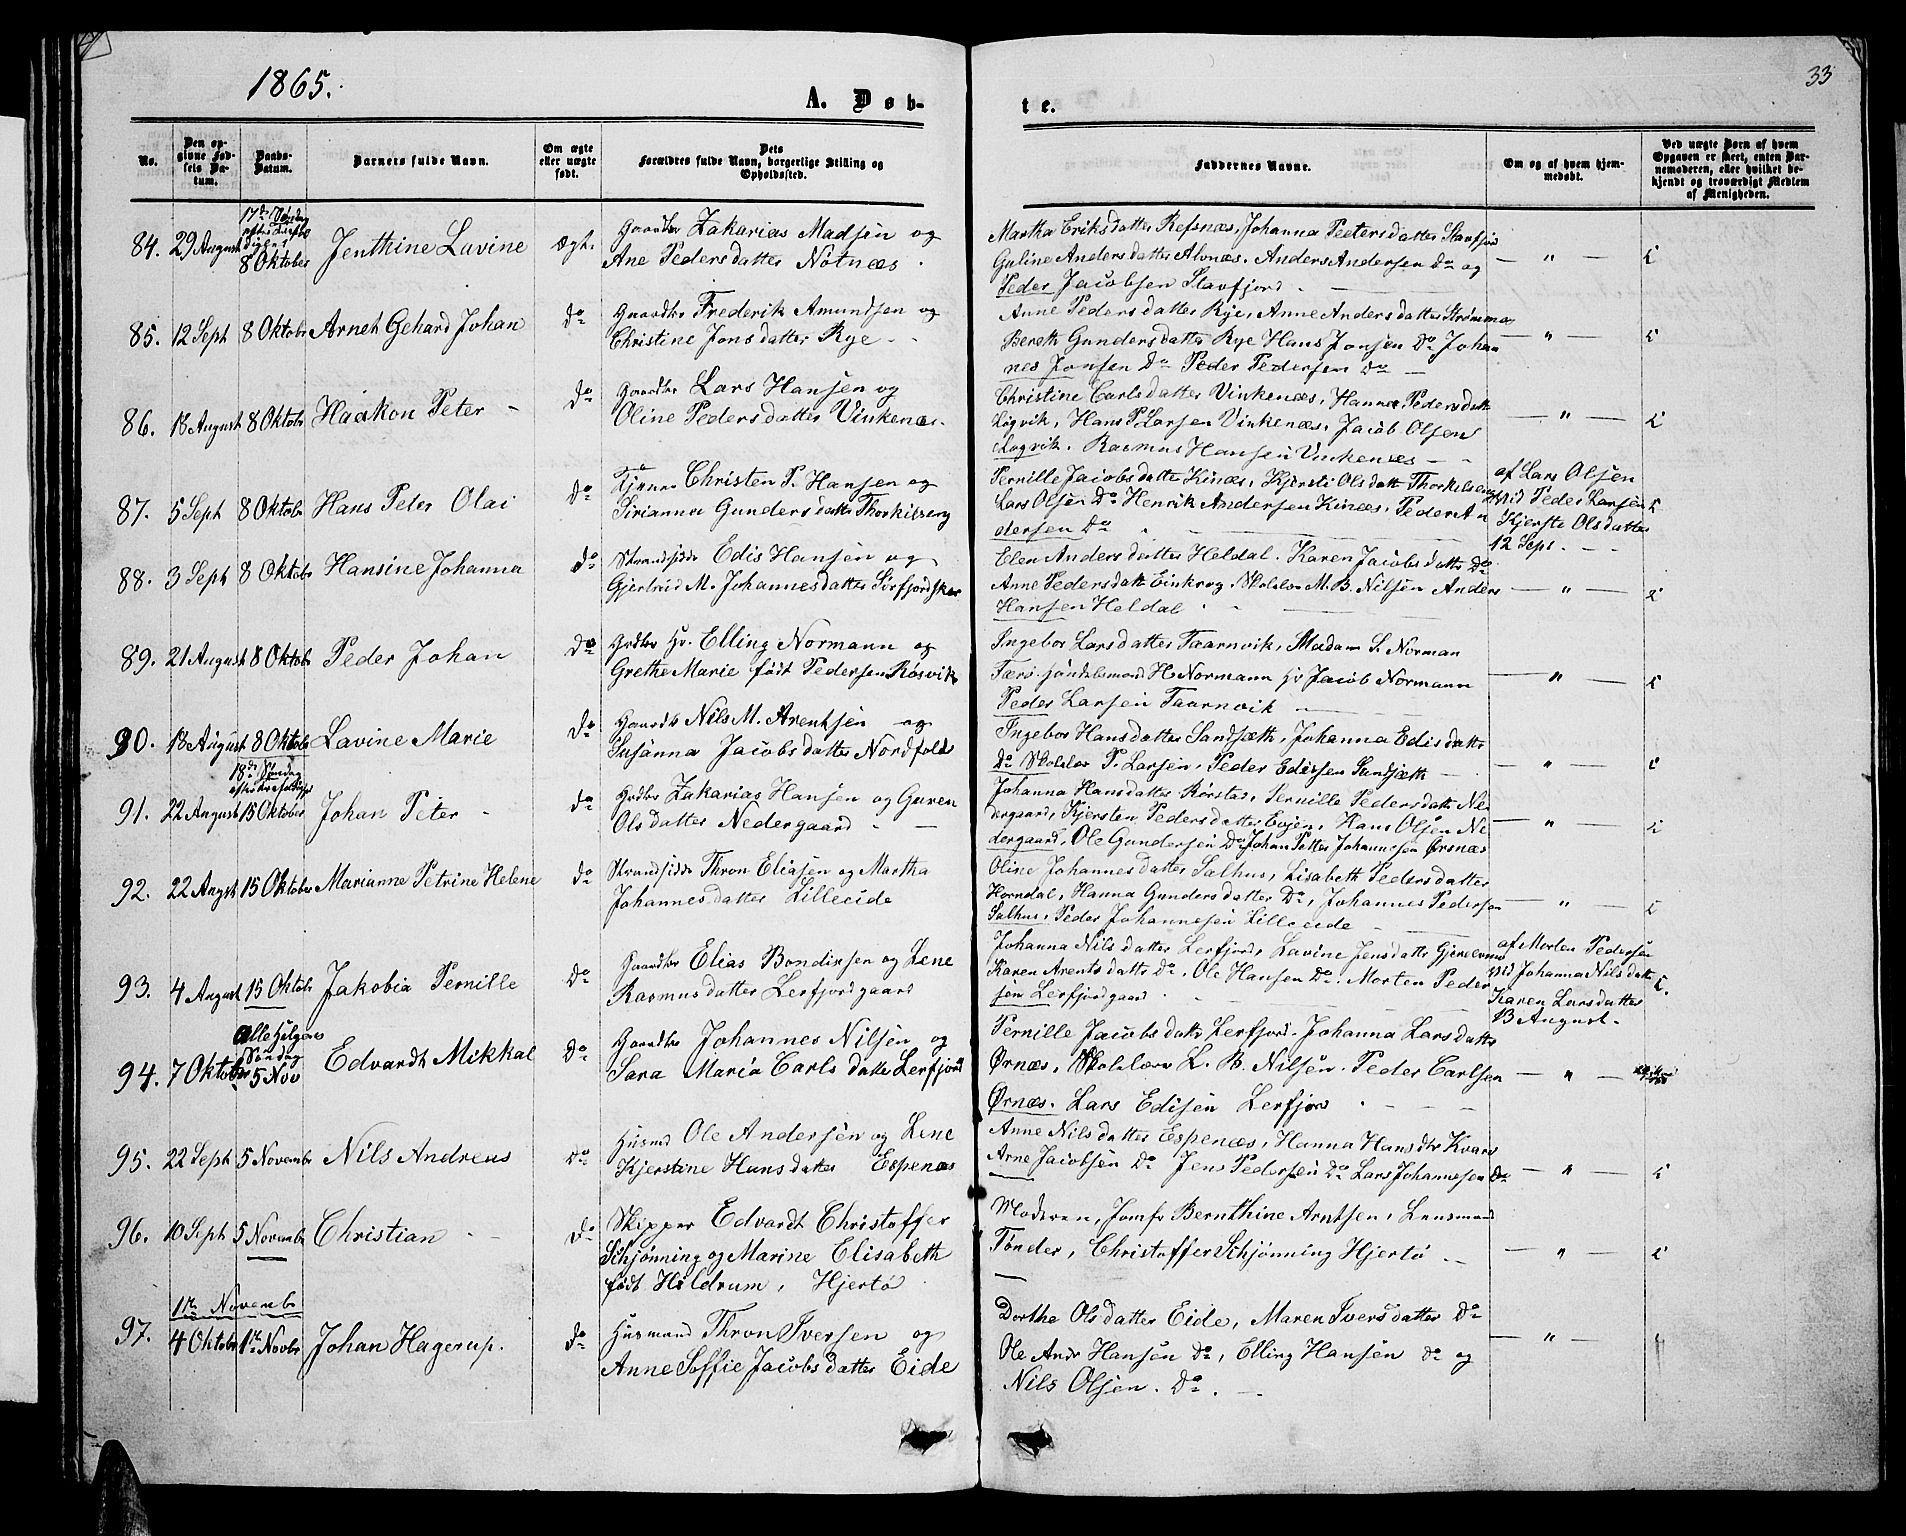 1865.
33
A. Døb-
te.
No.
Den op-
givne Fød-
sels Da-
tum.
Daabs-
Datum.
Barnets fulde Navn.
Om ægte
eller uægte
født.
Dets
Forældres fulde Navn, borgerlige Stilling og
Opholdssted.
Faddernes Navne.
Om og af hvem hjem-
medøbt.
Ved uægte Børn af hvem
Opgaven er skeet, enten Bar-
nemoderen, eller hvilket be-
kjendt og troværdigt Medlem
af Menigheden.
17de Søndag
8 Oktober
84. 29 August Jenthine Lavine ægt.
Gaardbr Zakarias Madsen og
Ane Pedersdatter Nötnæs
Martha Eriksdatter Refsnæs, Johanna Petersdatter Stavfjor
Guline Andersdatter Alvnæs. Anders Andersen Do og
Peder Jacobsen Stavfjord
85. 12 Sept 8 Oktobr Arnet Gehard Johan Do
Gaardbr Frederik Amundsen og
Christine Jonsdatter Rye
Anne Pedersdatter Rye, Anne Andersdatter Strömmæ
Bereth Gundersdatter Rye Hans Jonsen Do Johan
nes Jonsen Do Peder Pedersen Do
86. 13 August 8 Oktobr Haakon Peter Do
Gaardbr Lars Hansen og
Oline Pedersdatter Vinkenæs
Christine Carlsdatter Vinkenæs, Hanna Pedersdatt
Løgvik, Hans P Larsen Vinkenæs, Jacob Olsen
Løgvik. Rasmus Hansen Vinkenæs
87. 5 Sept 8 Oktobr Hans Peter Olai Do
Christen P. Hansen og
Sirianna Gundersdatter Thorkilseng
Pernille Jacobsdatte Kinæs, Kjersti Olsdatt Thorkelseng
Lars Olsen Do Henrik Andersen Kinæs, Peder An
dersen Do
af Lars Olsen
Vid Peder Larsen
Kjerste Olsdatter
12 Sept.
88. 3 Sept 8 Oktobr Hansine Johanna Do
Strandsidde Edis Hansen og
Gjertrud M. Johannesdatter Sørfjordskar
Elen Andersdatter Heldal. Karen Jacobsdatte Do
Anne Pedersdatt Einkrog, Skolelær M. B. Nilsen Anders
Hansen Heldal
89. 21 August 8 Oktobr Peder Johan Do
Grdbr Hr. Elling Normann og
Grethe Marie født Pedersen Røsvik
Ingebor Larsdatter Taarnvik, Madam S. Norman
H Normann Hr Jacob Normann
Peder Larsen Taarnvik
90. 13 August 8 Oktobr Lavine Marie Do
Gaardb Nils M. Arentsen og
Susanna Jacobsdatter Nordfold
Ingebor Hansdatter Sandsæth, Johanna Edisdatte
Do Skolelær P. Larsen, Peder Edissen Sandsæth
18de Søndag
91. 22 August 15 Oktober Johan Peter Do
Grdbr Zakarias Hansen og Guren
Olsdatter Nedergaard
Johanna Hansdatter Rörstad, Pernille Pedersdatte Ne
dergaard, Kjersten Pedersdatter Evjen, Hans Olsen Ne
dergaard, Ole Gundersen Do Johan Petter Johannesen Ørsnæs
92. 22 Augst 15 Oktober Marianne Petrine Helene Do
Strandsidde Thron Eliasen og Martha
Johannesdatter Lilleeide
Oline Johannesdatter Salhus, Lisabeth Pedersdatter
Horndal, Hanna Gundersdatter Do, Johannes Pedersen
Salhus, Peder Johannesen Lilleeide
93. 4 August 15 Oktobr Jakobia Pernille Do
Gaardbr Elias Bendixsen og Lene
Rasmusdatter Lerfjordgaard
Johanna Nilsdatter Lerfjord, Lavine Jensdatte
Karen Arentsdatte Do, Ole Hansen Do. Morten Peder
sen Lerfjordgaard
af Morten Pedersen
Vid Johanna Nilsdatte
Karen Larsdatter
13 August.
Alle Helgens
Søndag
94. 7 Oktobr 5 Nov Edvardt Mikkal Do
Gaardbr Johannes Nilsen og
Sara Maria Carlsdatte Lerfjord
Pernille Jacobsdatte Lerfjord. Johanna Larsdatter
Ørnæs, Skolelærer L. B. Nilsen. Peder Carlsen
Ørnæs. Lars Edisen Lerfjord
95. 22 Sept 5 Novembr Nils Andreas Do
Husmd Ole Andersen og Lene
Kjerstine Hansdatter Espenæs
Anne Nilsdatter Espenæs, Hanna Hansdtr Kvarv
Arne Jacobsen Do Jens Pedersen Do Lars Johannesen Do
96. 10 Sept 5 Novembr Christian Do
Skipper Edvardt Christoffer
Schjønning og Marine Elisabeth
født Holdrum, Hjertö
Moderen, Jomfr Bernthine Arntsen, Lensmand
Tønder, Christoffer Schjønning Hjertö
1te Novembr
97. 4 Oktobr 1te Novbr Johan Hagerup. Do
Husmand Thron Iversen og
Anne Soffie Jacobsdatter Eide
Dorthe Olsdatter Eide, Maren Iversdatter Do
Ole Andr Hansen Do, Elling Hansen Do og
Nils Olsen. Do